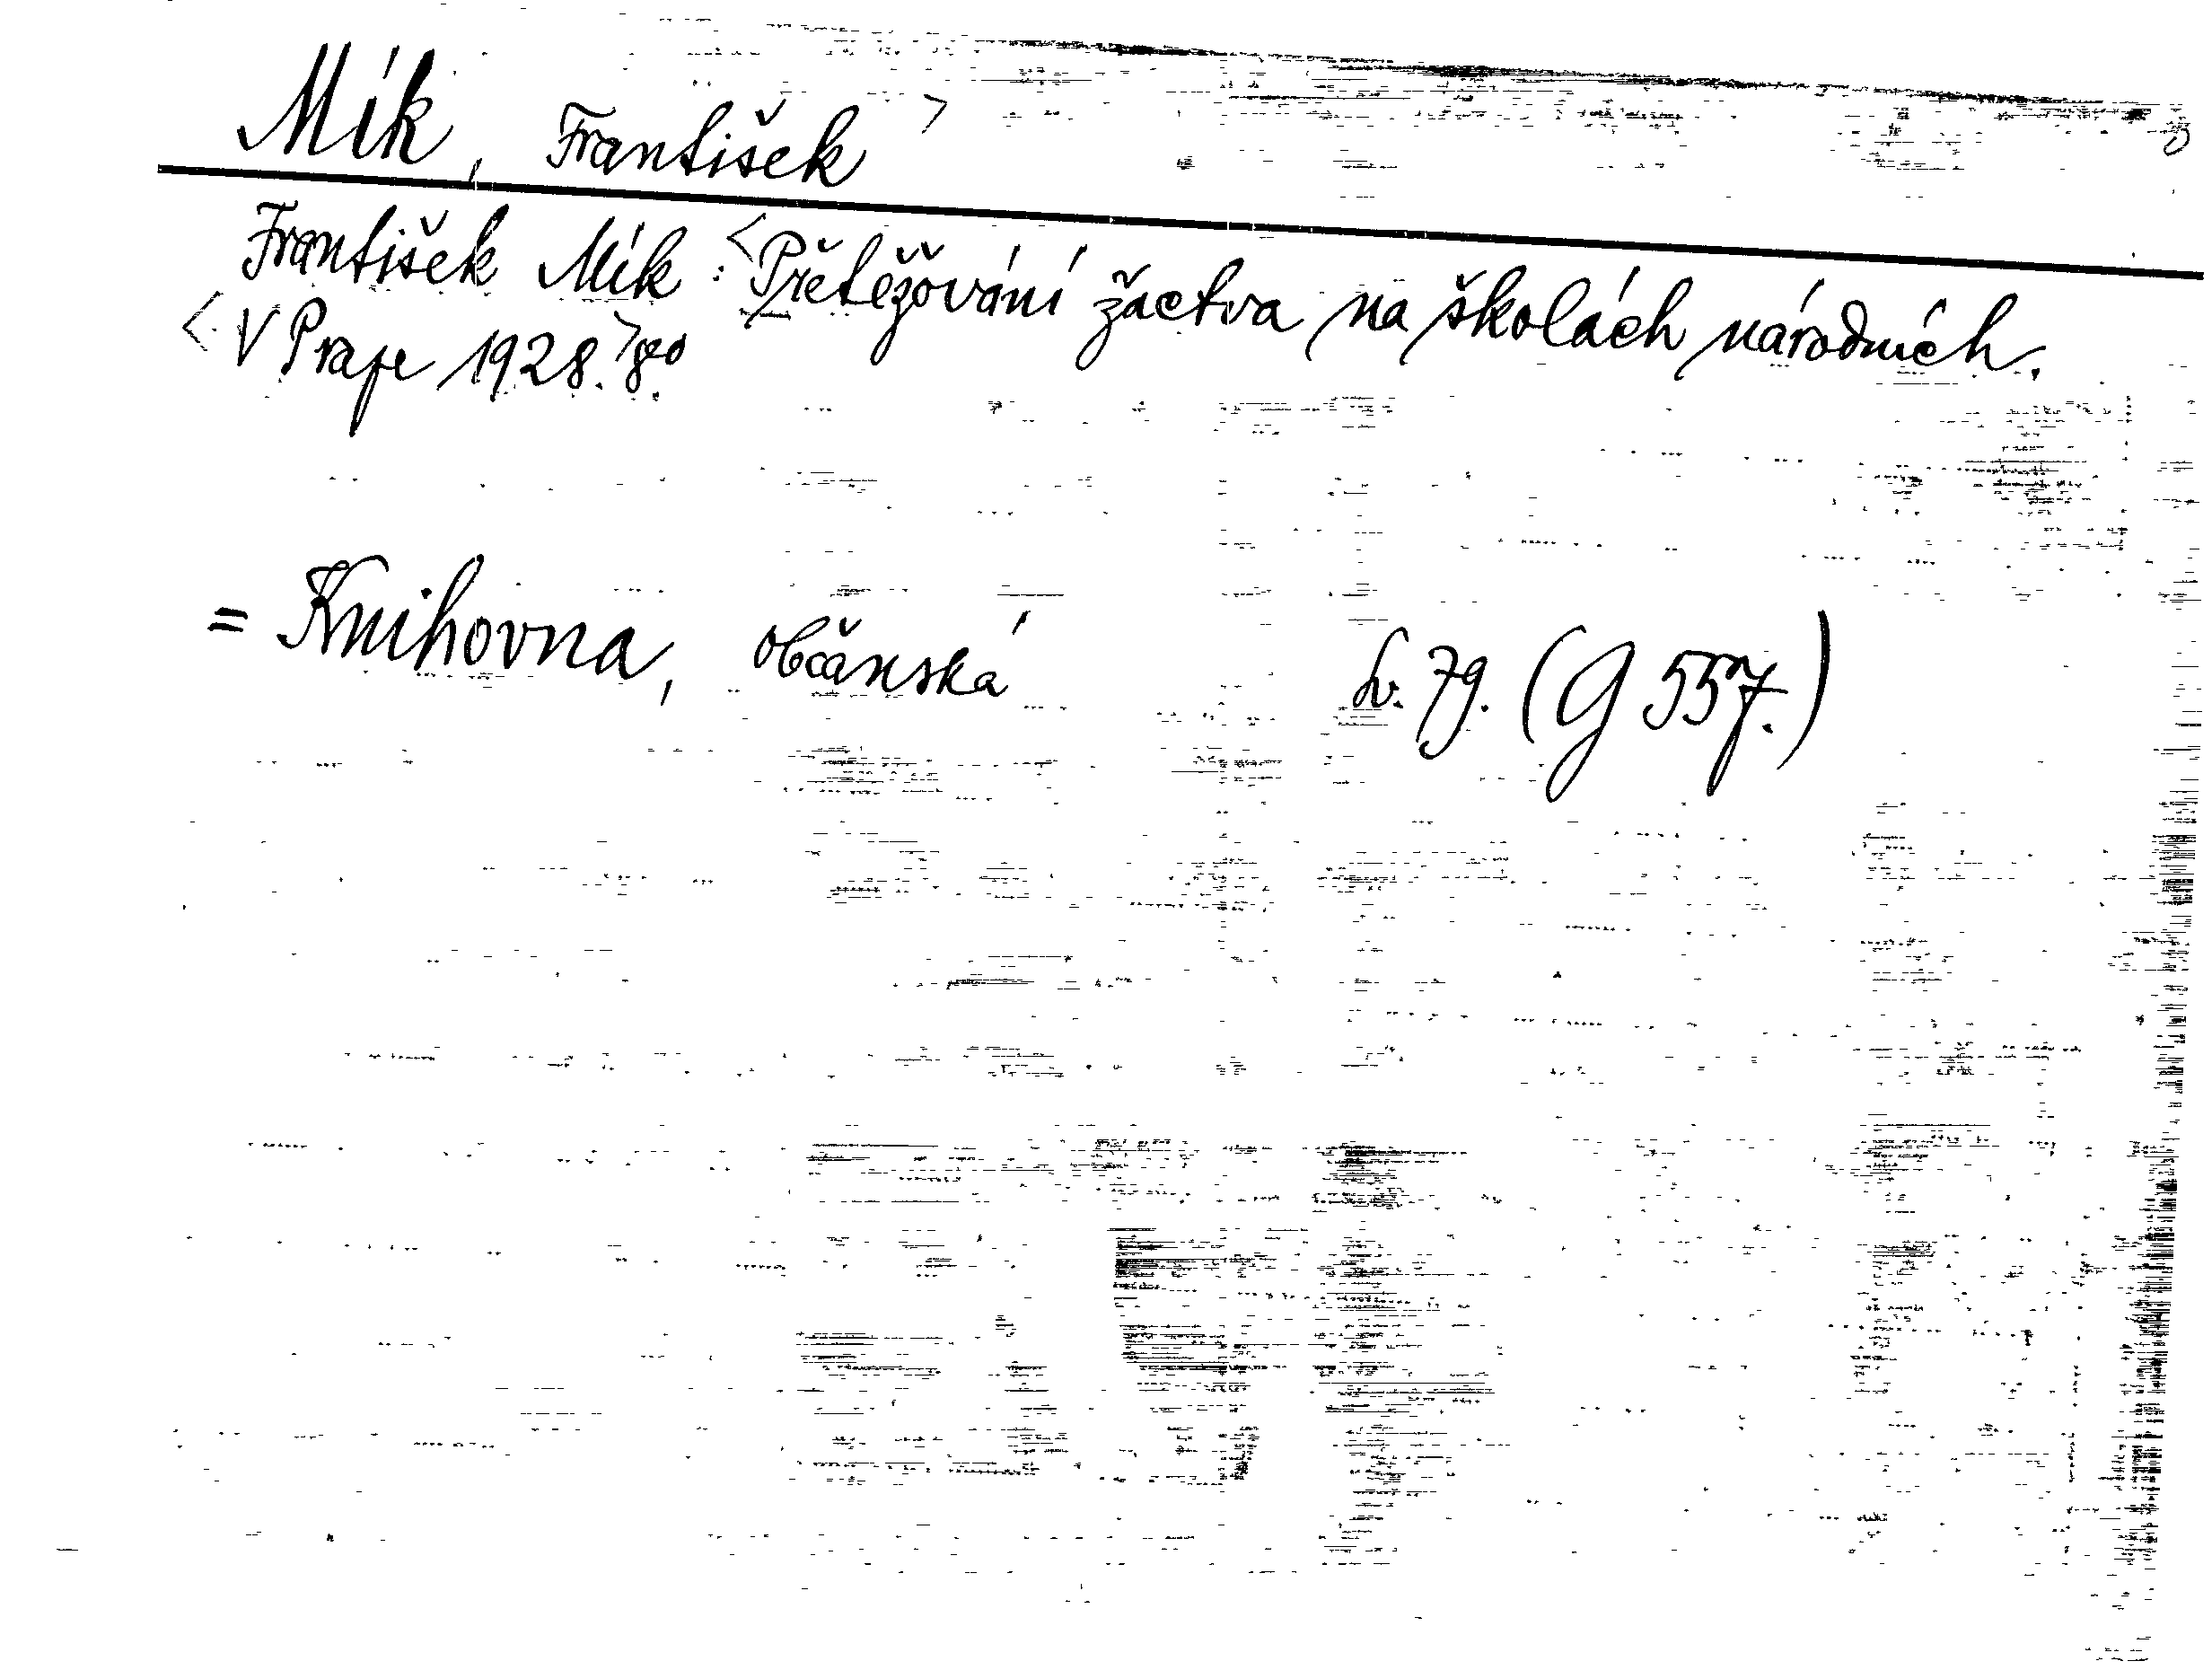 Mík, František >
František Mík : < Přetěžování žactva na školách národních.
< V Praze 1928. > 8°.
= Knihovna, občanská č. 79. (G 557.)